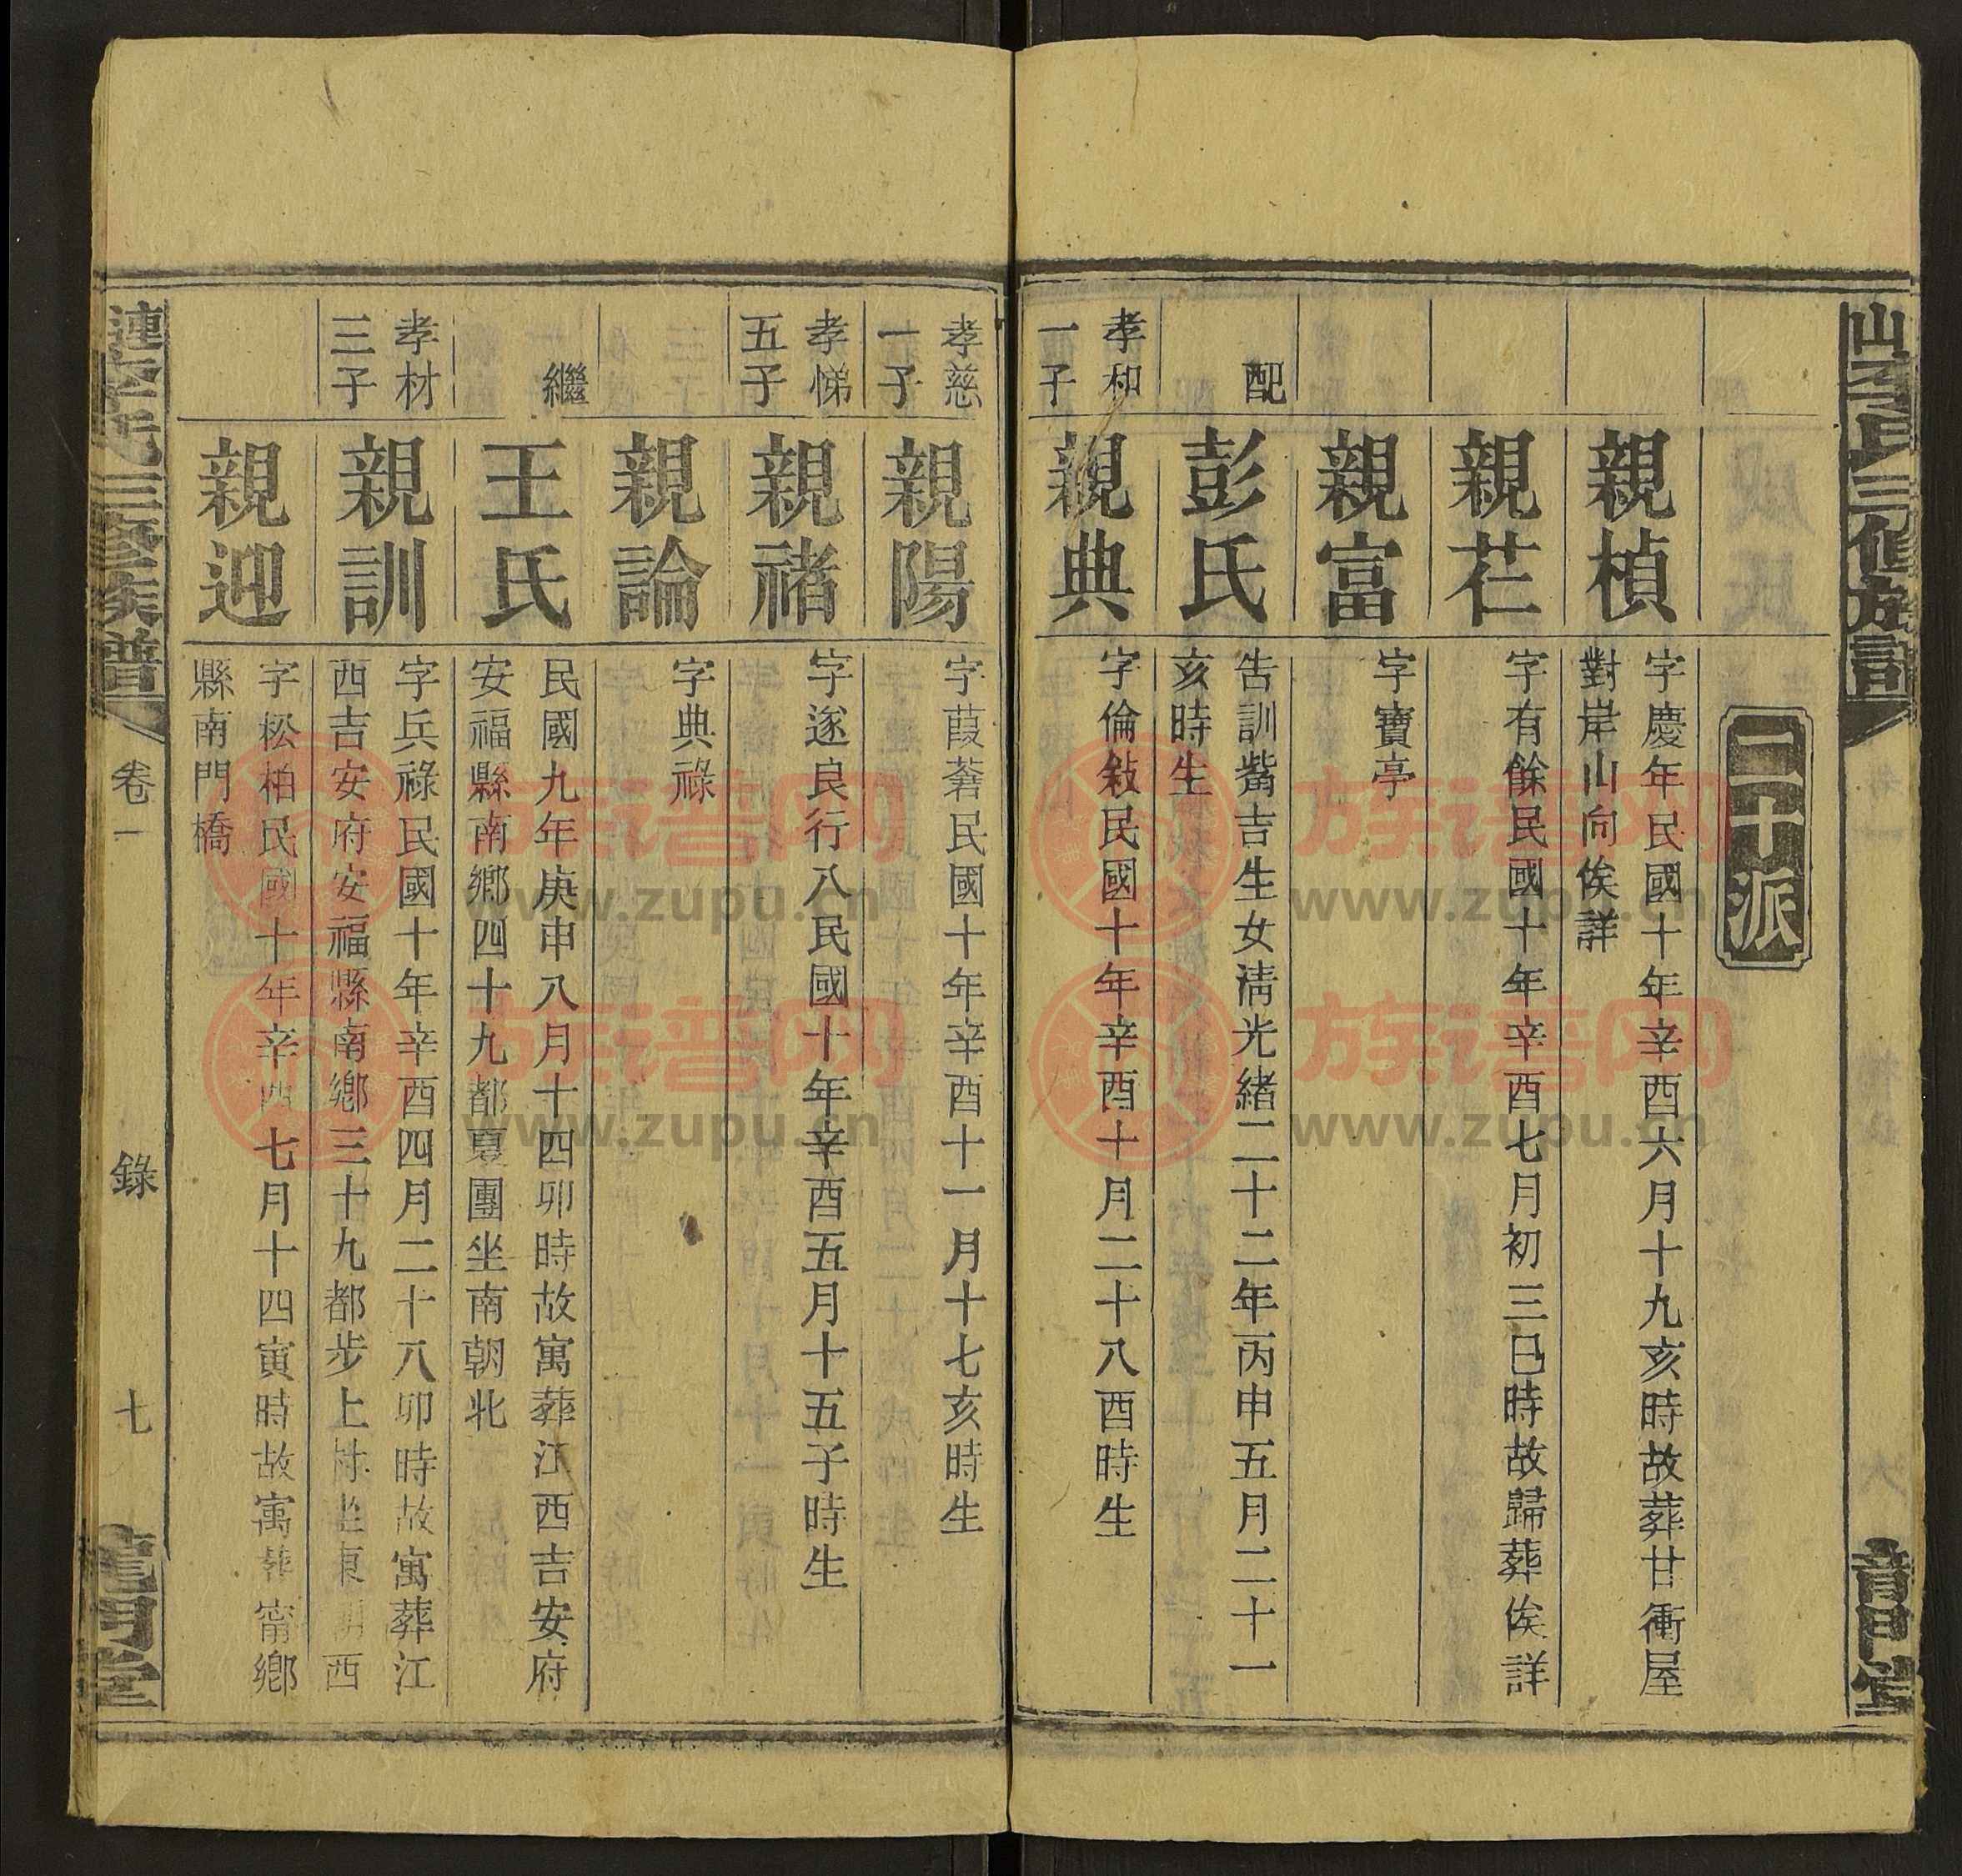 二十派
親楨
字慶年民國十年辛酉六月十九亥時故葬甘衝屋
對岸山向俟詳
親芢
字有餘民國十年辛酉七月初三巳時故歸葬俟詳
親富
字寶亭
配
彭氏
告訓觜吉生女淸光緒二十二年丙申五月二十一
亥時生
孝和
一子
親典
字倫敍民國十年辛酉十月二十八酉時生
孝慈
一子
親陽
字葭菶民國十年辛酉十一月十七亥時生
孝悌
五子
親禇
字遂良行八民國十年辛酉五月十五子時生
親論
字典祿
繼
王氏
民國九年庚申八月十四卯時故寓葬江西吉安府
安福縣南鄉四十九都夏團坐南朝北
孝材
三子
親訓
字兵祿民國十年辛酉四月二十八卯時故寓葬江
西吉安府安福縣南鄉三十九都步上村坐東朝西
親迎
字松柏民國十年辛酉七月十四寅時故寓葬甯鄉
縣南門橋
李氏三修族譜
卷一
錄
七
龍門堂
族谱网
www.zupu.cn
族谱网
www.zupu.cn
族谱网
www.zupu.cn
族谱网
www.zupu.cn